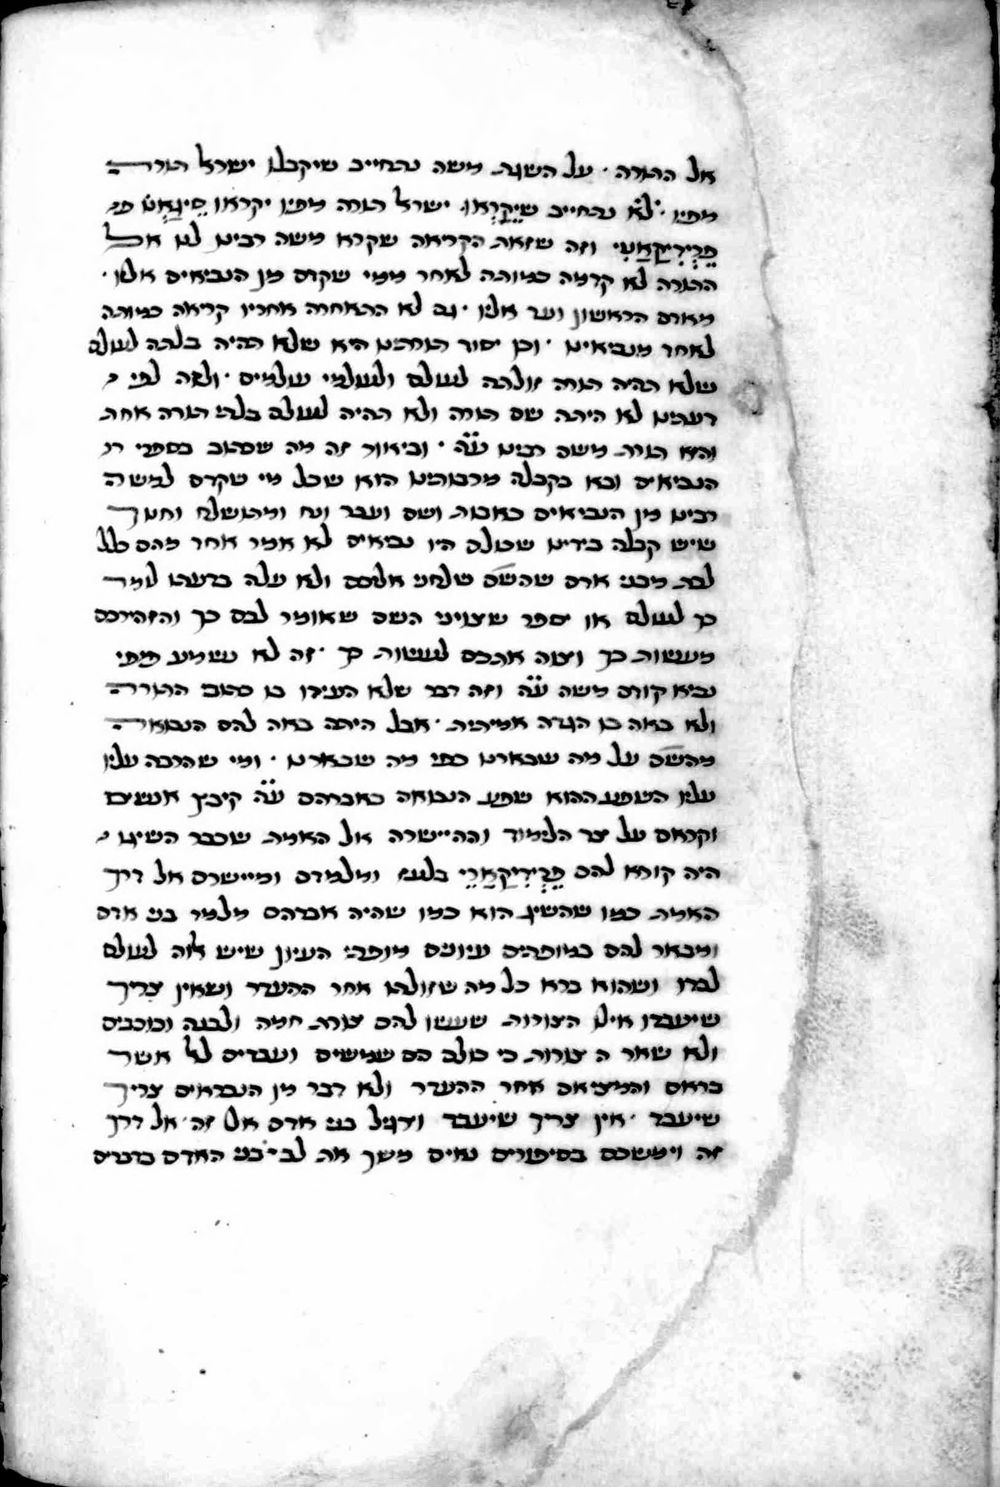 אל התורה · על השגת משה נתחייב שיקבלו ישראל תורה
מפיו · לא נתחייב שיקראו ישראל תורה מפיו יקראו
פרידיקאטי וזה שזאת הקריאה שקרא משה רבינו לנו אל
התורה לא קדמה כמותה לאחר ממי שקדם מן הנביאים אלינו ·
מאדם הראשון ועד אלינו · גם לא התאחרה אחריו קריאה כמותה
לאחד מנביאינו · וכן יסוד תורתינו היא שלא תהיה בלתה לעולם
שלא תהיה תורה זולתה לעולם ולעולמי עולמים · ולזה לפי
דעתינו לא היתה שם תורה ולא תהיה לעולם בלתי תורה אחת
והיא תורת משה רבינו ע״ה · וביאור זה מה שכתוב בספרי
הנביאים ובא בקבלה מרבותינו הוא שכל מי שקדם למשה
רבינו מן הנביאים כאבות ושם ועבר ונח ומתושלח וחנוך
שיש קבלה בידינו שכולם היו נביאים לא אמר אחד מהם כלל
לכת מבני אדם שהשם שלחני אליכם ולא עלה בדעתו לומר
כך לעולם או יספר שצויני השם שאומר לכם כך והזהירכם
מעשות כך וצוה אתכם לעשות כך · זה לא נשמע מפי
נביא קודם משה ע״ה וזה דבר שלא העידו בו כתובי התורה
ולא באה בו הגדה אמיתית · אבל היתה באה להם הנבואה
מהשם על מה שבארנו כפי מה שבארנו · ומי שהרבה עליו
עליו השפע ההוא שפע הנבואה כאברהם ע״ה קיבץ אנשים
וקראם על צד הלימוד וההיישרה אל האמת שכבר השיגו
היה קורא להם פרידיקארי בלעז ומלמדם ומיישרם אל דרך
האמת כמו שהשיג הוא כמו שהיה אברהם מלמד בני אדם
ומבאר להם במופתים עיוניים מופתי העיון שיש אלוה לעולם
לבדו ושהוא ברא כל מה שזולתו אחר ההעדר ושאין צריך
שיעבדו אילו הצורות שעשו להם צורת חמה ולבנה וכוכבים
ולא שאר הצורות כי כולם הם שמשים ועבדים לאל אשר
בראם והמציאם אחר ההעדר ולא דבר מן הנבראים צריך
שיעבד · אין צריך שיעבד וירגיל בני אדם אל זה · אל דרך
זה וימשכם בסיפורים נאים משך את לב בני האדם בדברים